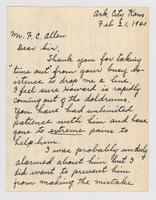 Ark. City, Kans
Feb 21, 1940
Mr. F. C. Allen
Dear Sir,
Thank you for taking
"time out" from your busy ex-
istence to drop me a line.
I feel sure Howard is rapidly
coming out of the doldrums.
You have had unlimited
patience with him and have
gone to extreme pains to
help him.
I was probably unduly
alarmed about him but I
did want to prevent him
from making the mistake